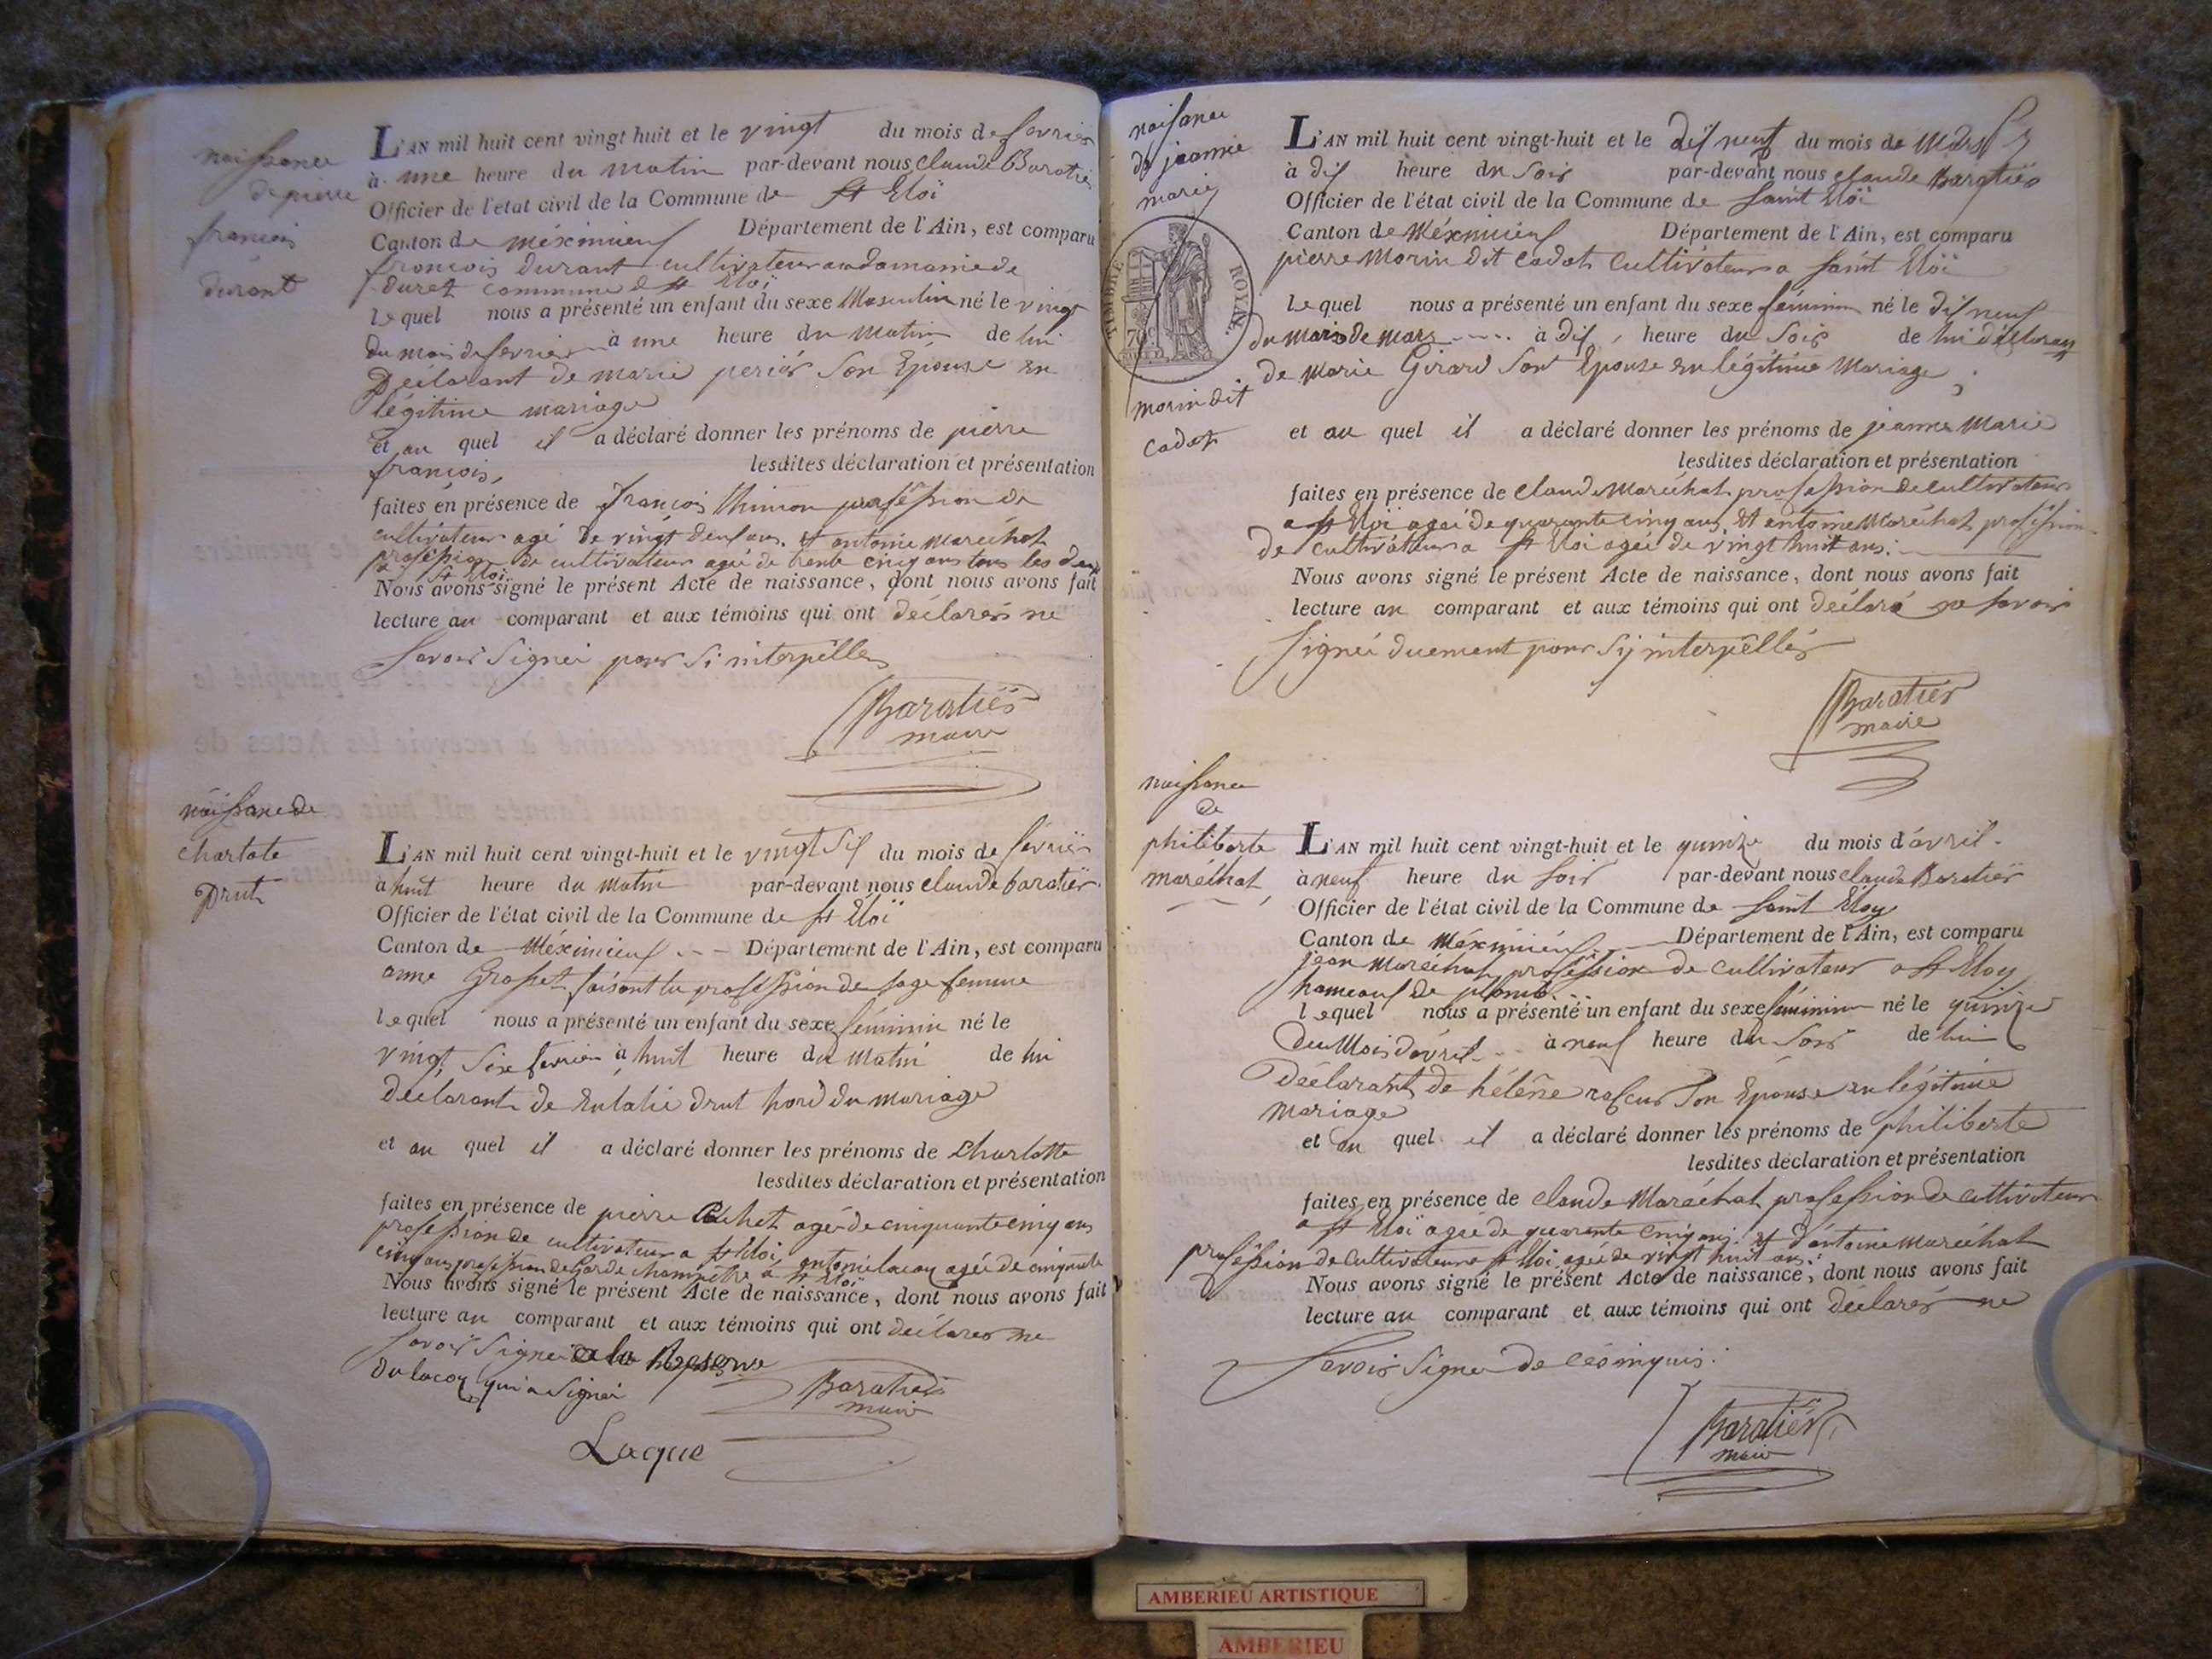 naissance
de pierre
francois
durant
L'AN mil huit cent vingt huit et le vingt du mois de fevrier
à une heure du matin par-devant nous Claude Baratier
Officier de l'etat civil de la Commune de St Eloï
Canton de méximieux Département de l'Ain, est comparu
francois durant cultivateur au domaine de
duret commune de St Eloi
lequel nous a présenté un enfant du sexe Masculin né le vingt
du mois de fevrier à une heure du matin de lui
Déclarant de marie periér son Epouse en
légitime mariage
et au quel il a déclaré donner les prénoms de pierre
françois, lesdites déclaration et présentation
faites en présence de françois thinon profession de
cultivateur agé de vingt deux ans. et antoine maréchal
profession de cultivateur agée de trente cinq ans tous les deux
a St Eloi
Nous avons signé le présent Acte de naissance, dont nous avons fait
lecture au comparant et aux témoins qui ont déclarés ne
savoir signer pour si interpelles
Baratiér
maire
naissance de
charlote
Drut
L'AN mil huit cent vingt-huit et le vingt six du mois de fevrier
à huit heure du matin par-devant nous claude baratier
Officier de l'état civil de la Commune de St Eloï
Canton de Méximieux Département de l'Ain, est comparu
anne Grosset faisant la profession de sage femme
lequel nous a présenté un enfant du sexe féminin né le
vingt six fevrier à huit heure du matin de lui
déclarant de Eulalie drut hord du mariage
et au quel il a déclaré donner les prénoms de Charlotte
lesdites déclaration et présentation
faites en présence de pierre agé de cinquante cinq ans
profession de cultivateur a St Eloi, antoine lacou agée de cinquante
cinq ans profession de Garde champêtre à St Eloï
Nous avons signé le présent Acte de naissance, dont nous avons fait
lecture au comparant et aux témoins qui ont déclarés ne
savoir signer a la Reserve
du lacou qui a signer
Baratier
maire
Laque
naisance
de jeanne
marie
TIMBRE ROYAL
70c
morin dit
cadet
L'AN mil huit cent vingt-huit et le dix neuf du mois de Mars
à dix heure du soir par-devant nous claude Baratiér
Officier de l'état civil de la Commune de saint Eloï
Canton de Méximieux Département de l'Ain, est comparu
pierre Morin dit cadet cultivateur a saint Eloï
lequel nous a présenté un enfant du sexe féminin né le dix neuf
du mois de mars à dix heure du soir de lui déclarant
de Marie Girard son Epouse en légitime Mariage
et au quel il a déclaré donner les prénoms de jeanne Marie
lesdites déclaration et présentation
faites en présence de claude Maréchal profession de cultivateur
a St Eloi agé de quarante cinq ans et antoine Maréchal profession
de cultivateur a St Eloi agée de vingt huit ans.
Nous avons signé le présent Acte de naissance, dont nous avons fait
lecture au comparant et aux témoins qui ont déclaré ne savoir
signer duement pour sy interpellér
Baratiér
maire
naissance
de
philiberte
maréchal
L'AN mil huit cent vingt-huit et le quinze du mois d'avril
à neuf heure du soir par-devant nous claude Baratier
Officier de l'état civil de la Commune de saint Eloy
Canton de Méximieux Département de l'Ain, est comparu
jean Maréchal profession de cultivateur a St Eloy
hameaux de plomb.
lequel nous a présenté un enfant du sexe féminin né le quinze
du Mois d'avril à neuf heure du soir de lui
déclarant de hélène son Epouse en légitime
mariage
et au quel il a déclaré donner les prénoms de philiberte
lesdites déclaration et présentation
faites en présence de claude Maréchal profession de cultivateur
a St Eloï agée de quarante cinq ans et d'antoine Maréchal
profession de cultivateur a St Eloi agée de vingt huit ans.
Nous avons signé le présent Acte de naissance, dont nous avons fait
lecture au comparant et aux témoins qui ont déclarés ne
savoir signer de ce enquis.
Baratiér
maire
AMBERIEU ARTISTIQUE
AMBERIEU